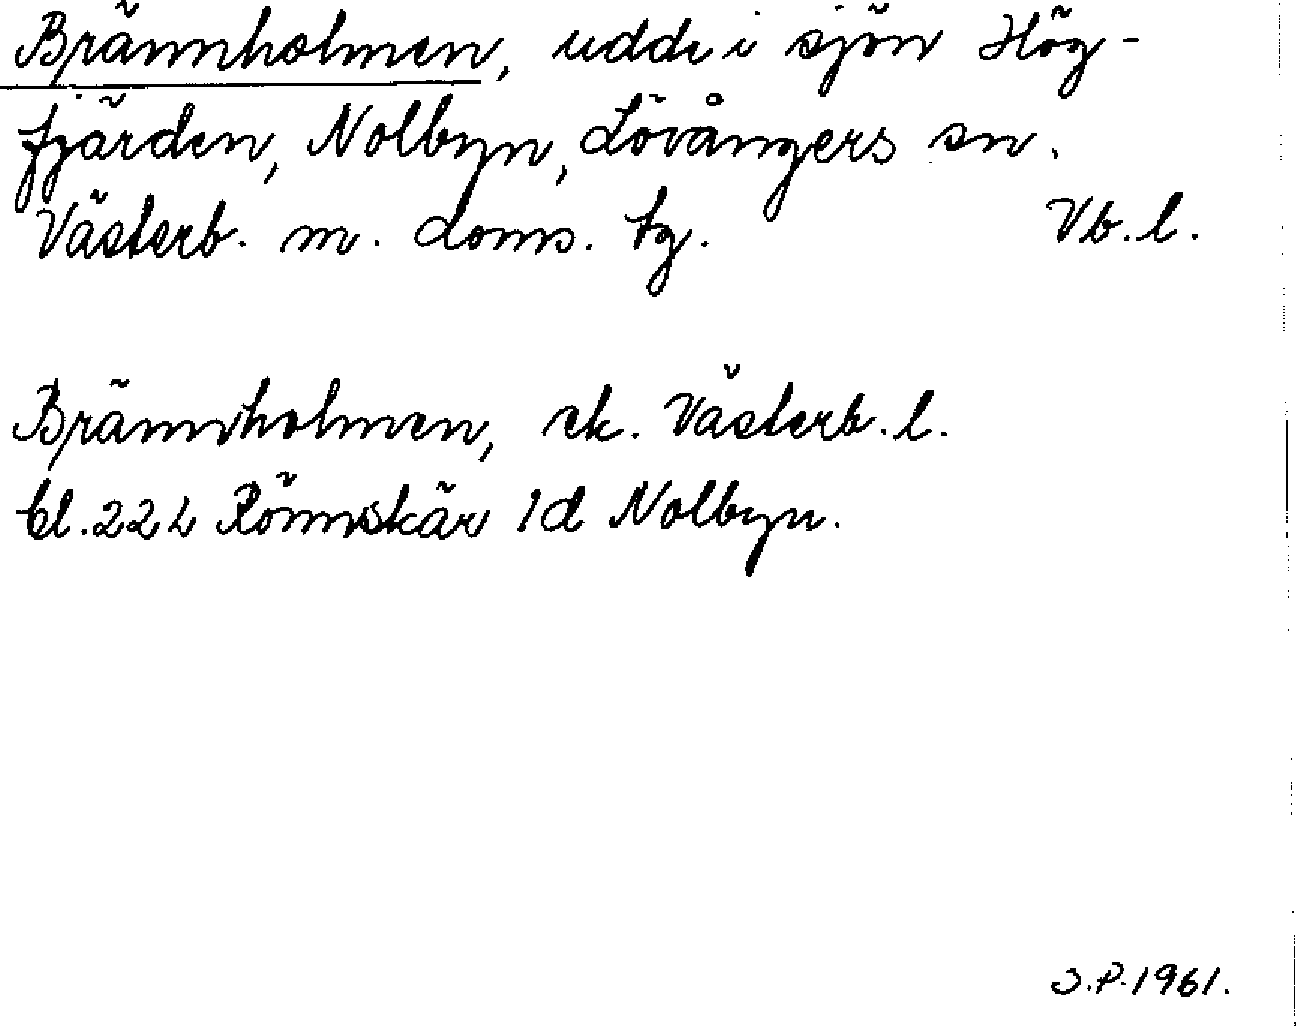 Brännholmen, udde i sjön Hög-
fjärden, Nolbyn, Lövångers sn.
Västerb. m. doms. tg. Vb. l.
Brännholmen, ek. Västerb. l.
bl. 222 Rönnskär 1d Nolbyn.
S.P. 1961.